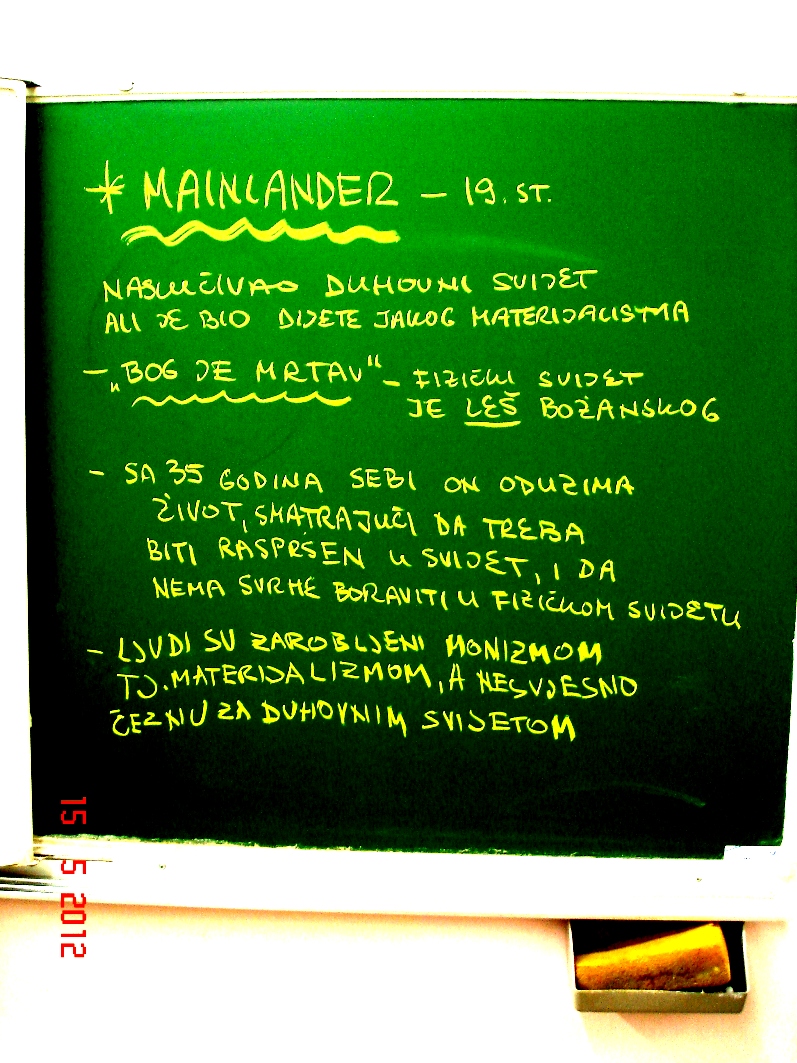 * MAINLANDER – 19. ST.
NASLUĆIVAO DUHOVNI SVIJET
ALI JE BIO DIJETE JAKOG MATERIJALISTMA
– „BOG JE MRTAV" – FIZIČKI SVIJET
JE LEŠ BOŽANSKOG
– SA 35 GODINA SEBI ON ODUZIMA
ŽIVOT, SMATRAJUĆI DA TREBA
BITI RASPRŠEN U SVIJET, I DA
NEMA SVRHE BORAVITI U FIZIČKOM SVIJETU
– LJUDI SU ZAROBLJENI MONIZMOM
TJ. MATERIJALIZMOM, A NESVJESNO
ČEZNU ZA DUHOVNIM SVIJETOM
15 5 2012